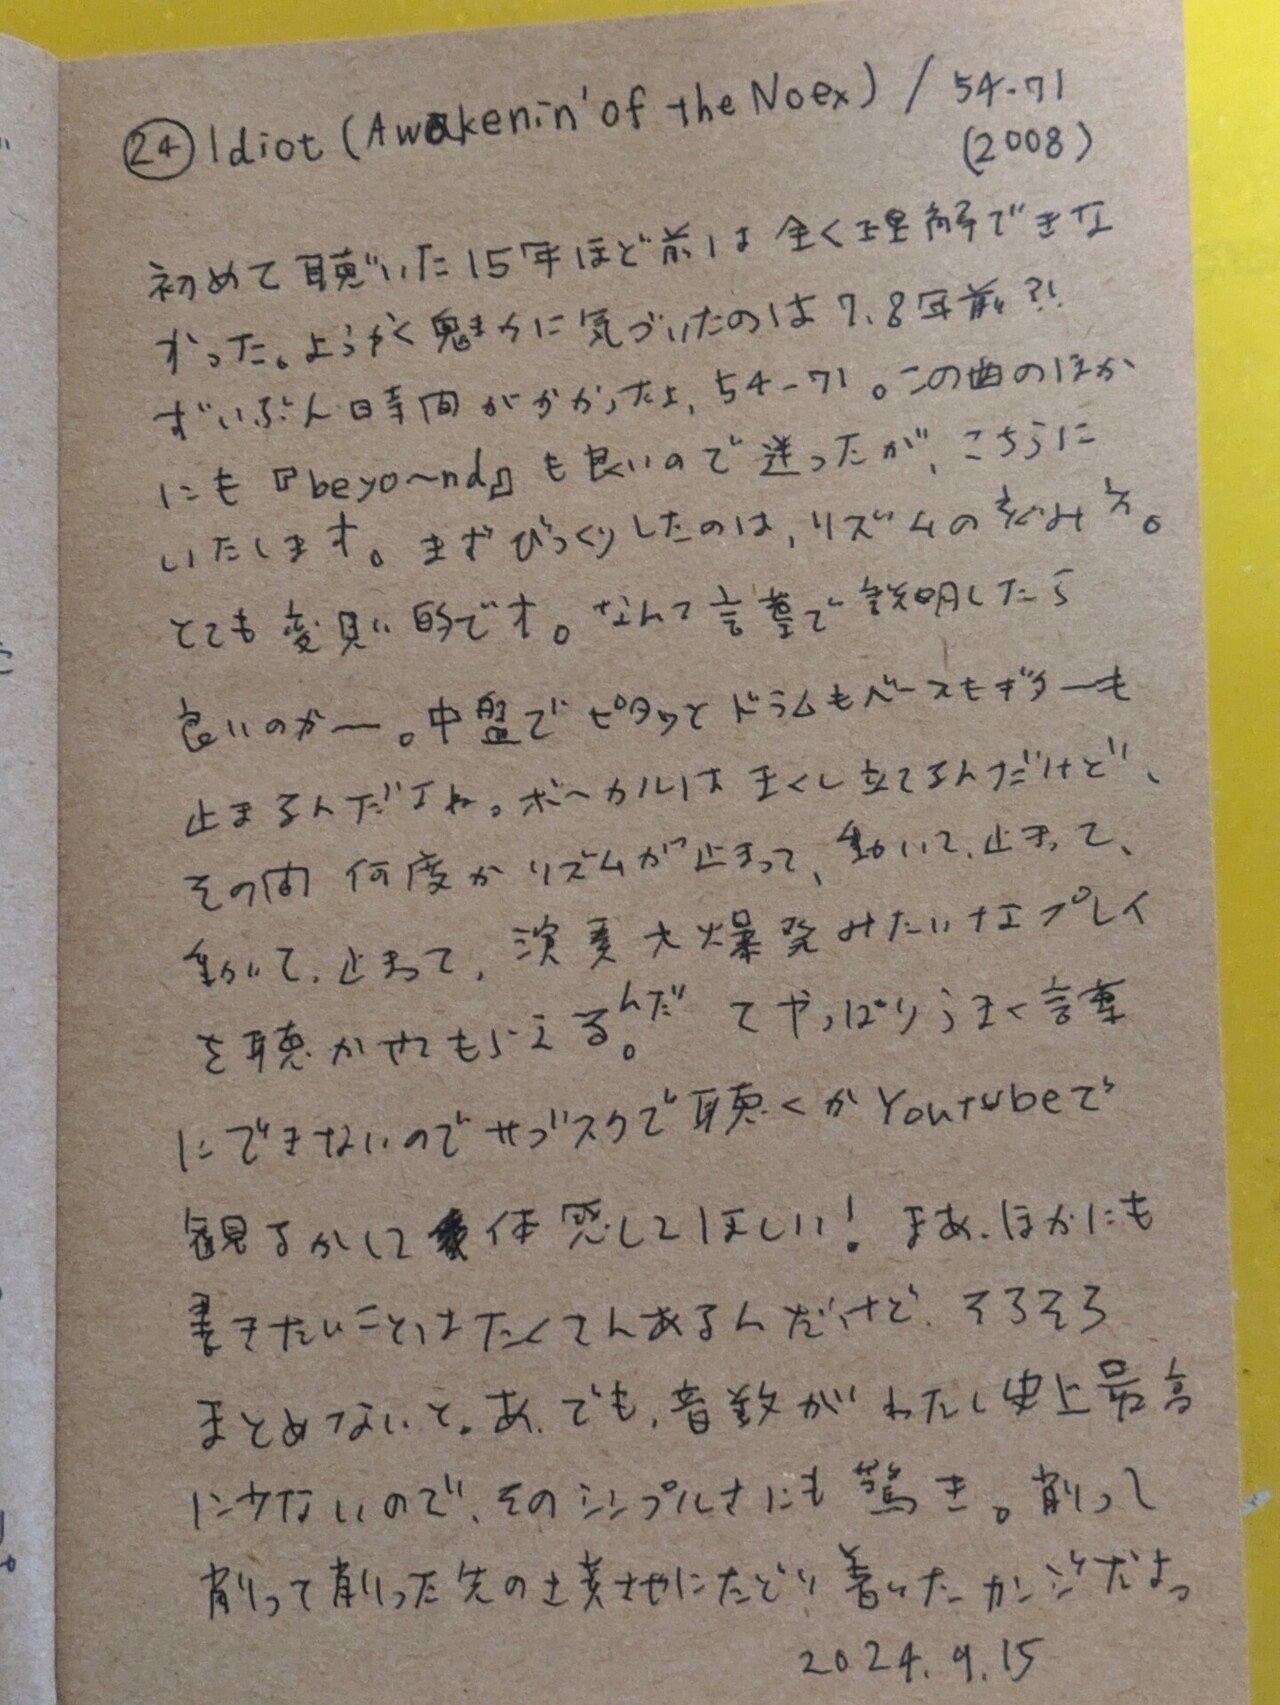 ㉔ Idiot (Awakenin' of the Noex) / 54-71
(2008)
初めて聴いた15年ほど前は全く理解できな
かった。ようやく魅力に気づいたのは7、8年前?!
ずいぶん時間がかかったよ、54-71。この曲のほか
にも『beyo~nd』も良いので迷ったが、こちらに
いたします。まずびっくりしたのは、リズムの歪み方。
とても変則的です。なんて言葉で説明したら
良いのかー。中盤でピタッとドラムもベースもギターも
止まるんだよね。ボーカルはまくし立てるんだけど、
その間何度かリズムが止まって、動いて、止まって、
動いて、止まって、演奏大爆発みたいなプレイ
を聴かせてもらえるんだ。てやっぱりうまく言葉
にできないのでサブスクで聴くかYoutubeで
観るかして体感してほしい!まあ、ほかにも
書きたいことはたくさんあるんだけど、そろそろ
まとめないと。あ、でも、音数がわたし史上最高
に少ないので、そのシンプルさにも驚き。削って
削って削った先の境地にたどり着いたカンジだよっ
2024.9.15